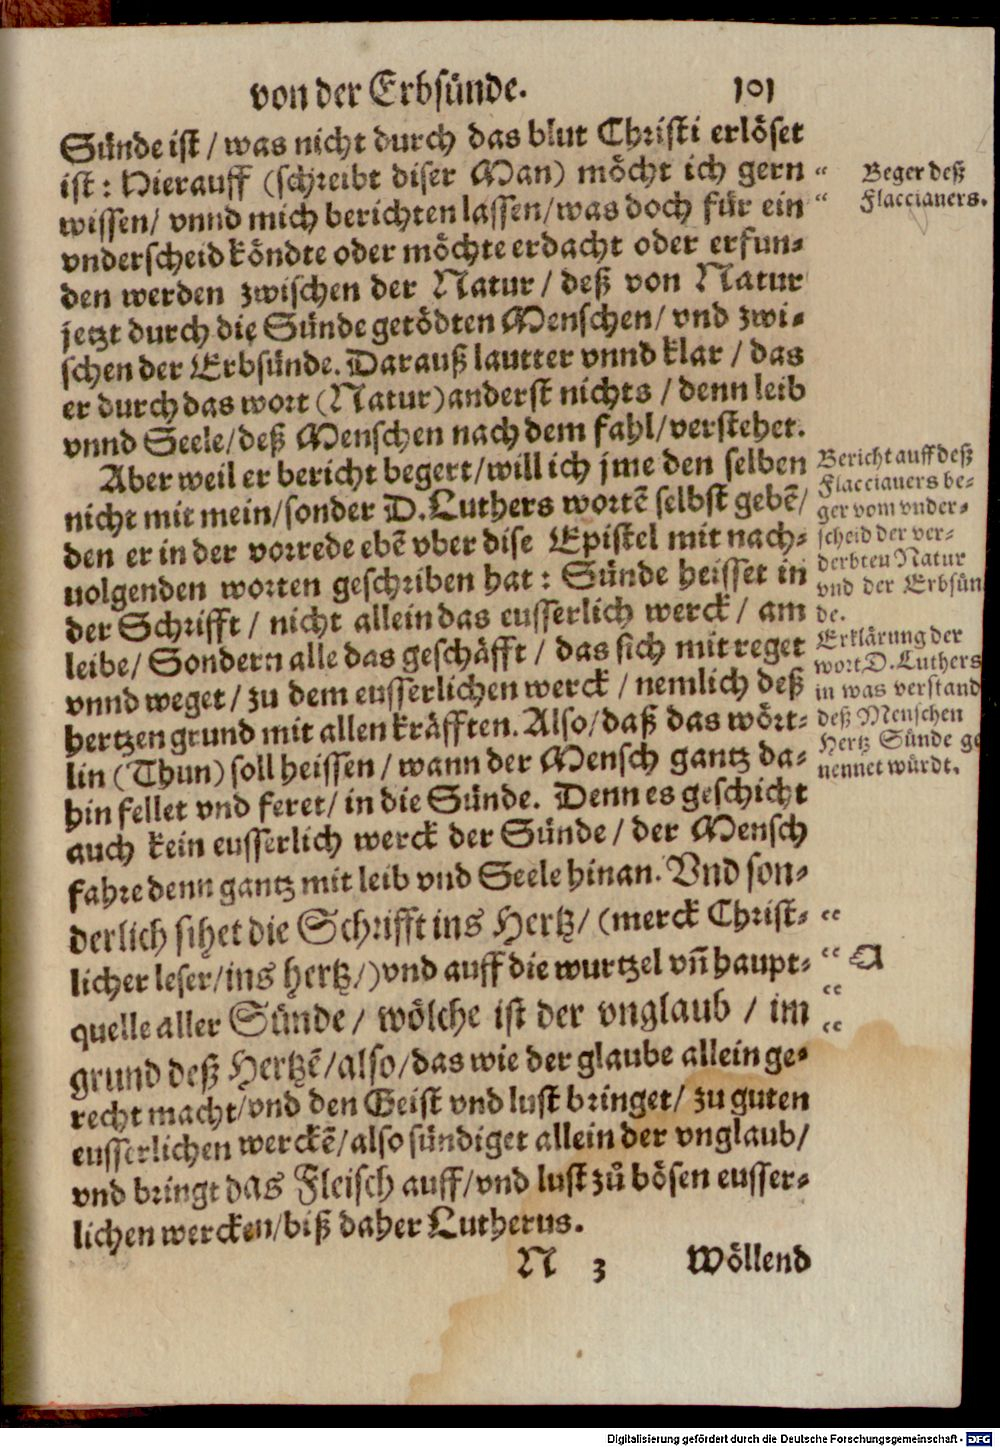 von der Erbsünde. 101
Sünde ist / was nicht durch das blut Christi erlöset
ist : Hierauff (schreibt diser Man) möcht ich gern “
wissen/ vnnd mich berichten lassen/was doch für ein “
vnderscheid köndte oder möchte erdacht oder erfun-
den werden zwischen der Natur / deß von Natur
jetzt durch die Sünde getödten Menschen/ vnd zwi-
schen der Erbsünde. Darauß lautter vnnd klar / das
er durch das wort (Natur) anderst nichts / denn leib
vnnd Seele/deß Menschen nach dem fahl/verstehet.
Aber weil er bericht begert/will ich jme den selben
nicht mit mein/sonder D. Luthers wortē selbst gebē/
den er in der vorrede ebē vber dise Epistel mit nach-
uolgenden worten geschriben hat : Sünde heisset in
der Schrifft / nicht allein das eusserlich werck / am
leibe/ Sondern alle das geschäfft / das sich mit reget
vnnd weget / zu dem eusserlichen werck / nemlich deß
hertzen grund mit allen kräfften. Also/daß das wört-
lin (Thun) soll heissen / wann der Mensch gantz da-
hin fellet vnd feret/ in die Sünde. Denn es geschicht
auch kein eusserlich werck der Sünde / der Mensch
fahre denn gantz mit leib vnd Seele hinan. Vnd son-
derlich sihet die Schrifft ins Hertz/ (merck Christ- “
licher leser/ins hertz/) vnd auff die wurtzel vn̄ haupt- “
quelle aller Sünde / wölche ist der vnglaub / im “
grund deß Hertzē/also/das wie der glaube allein ge- “
recht macht/vnd den Geist vnd lust bringet/ zu guten
eusserlichen werckē/also sündiget allein der vnglaub/
vnd bringt das Fleisch auff/vnd lust zů bösen eusser-
lichen wercken/biß daher Lutherus.
N 3 Wöllend
Beger deß
Flaccianers.
Bericht auff deß
Flaccianers be-
ger vom vnder-
scheid der ver-
derbten Natur
vnd der Erbsün
de.
Erklärung der
wort D. Luthers
in was verstand
deß Menschen
Hertz Sünde ge
nennet würdt.
Digitalisierung gefördert durch die Deutsche Forschungsgemeinschaft - DFG